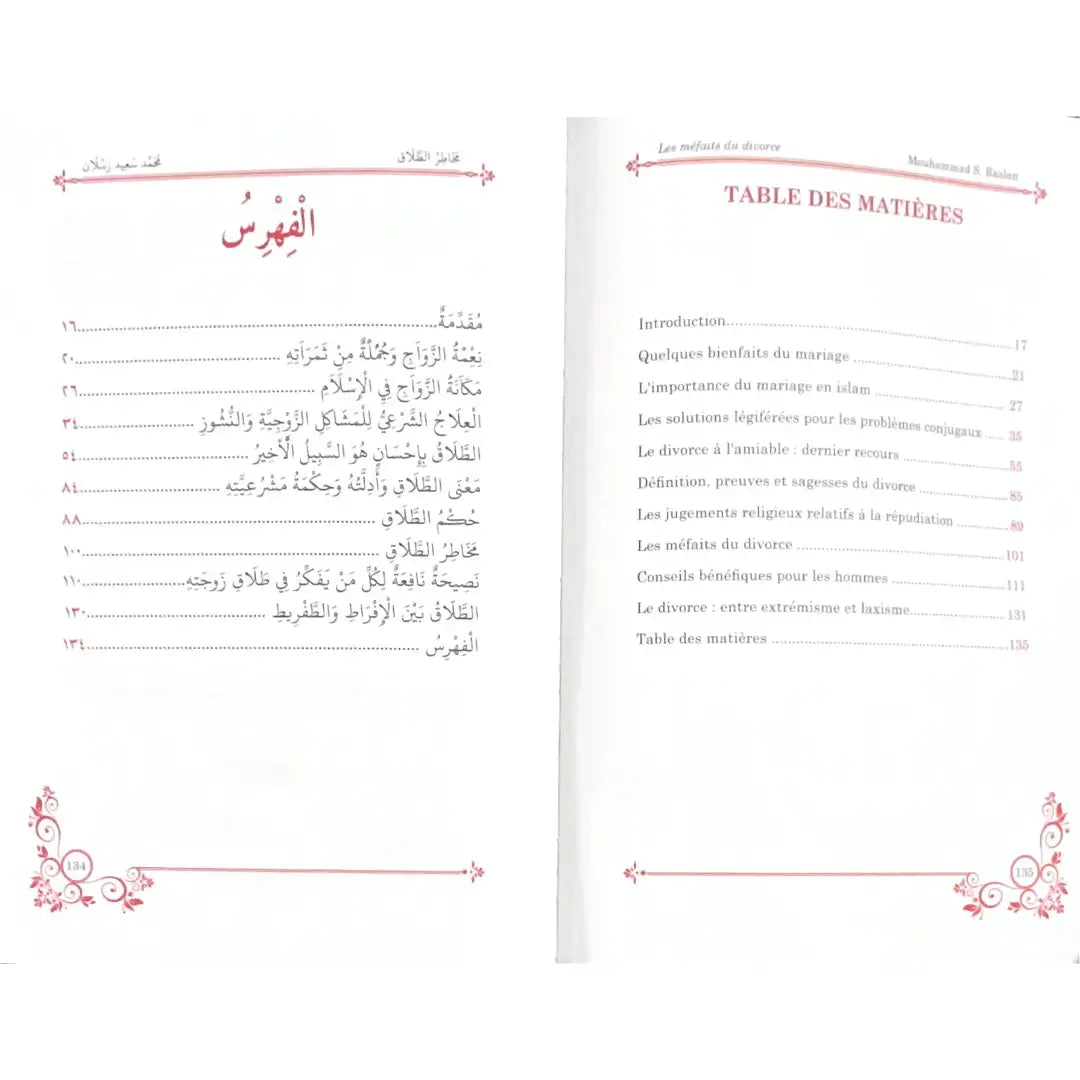 مَخَاطِرُ الطَّلَاق
مُحَمَّد سَعِيد رَسْلَان
الْفِهْرِسُ
مُقَدِّمَةٌ..........١٦
نِعْمَةُ الزَّوَاجِ وَجُمْلَةٌ مِنْ ثَمَرَاتِهِ ..........٢٠
مَكَانَةُ الزَّوَاجِ فِي الْإِسْلَامِ ..........٢٦
الْعِلَاجُ الشَّرْعِيُّ لِلْمَشَاكِلِ الزَّوْجِيَّةِ وَالنُّشُوزِ ..........٣٤
الطَّلَاقُ بِإِحْسَانٍ هُوَ السَّبِيلُ الْأَخِيرُ ..........٥٤
مَعْنَى الطَّلَاقِ وَأَدِلَّتُهُ وَحِكْمَةُ مَشْرُعِيَّتِهِ ..........٨٤
حُكْمُ الطَّلَاقِ ..........٨٨
مَخَاطِرُ الطَّلَاقِ ..........١٠٠
نَصِيحَةٌ نَافِعَةٌ لِكُلِّ مَنْ يَفَكِّرُ فِي طَلَاقِ زَوجَتِهِ..........١١٠
الطَّلَاقُ بَيْنَ الْإِفْرَاطِ وَالطَّفْرِيطِ ..........١٣٠
الْفِهْرِسُ ..........١٣٤
134
Les méfaits du divorce
Mouhammad S. Raslan
TABLE DES MATIÈRES
Introduction..........17
Quelques bienfaits du mariage ..........21
L'importance du mariage en islam .......... 27
Les solutions légiférées pour les problèmes conjugaux ..... 35
Le divorce à l'amiable : dernier recours ..........55
Définition, preuves et sagesses du divorce ..........85
Les jugements religieux relatifs à la répudiation ..........89
Les méfaits du divorce ..........101
Conseils bénéfiques pour les hommes ..........111
Le divorce : entre extrémisme et laxisme..........131
Table des matières ..........135
135